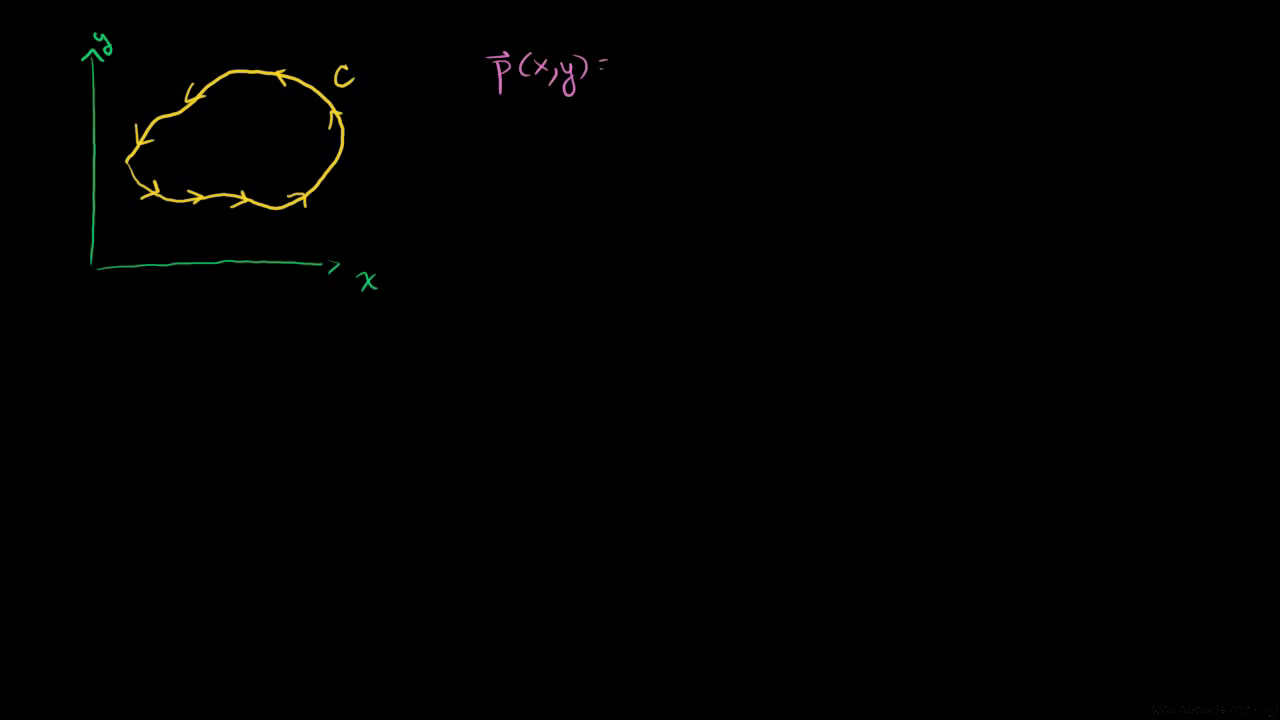 y
C
x
$\vec{p}(x,y)=$